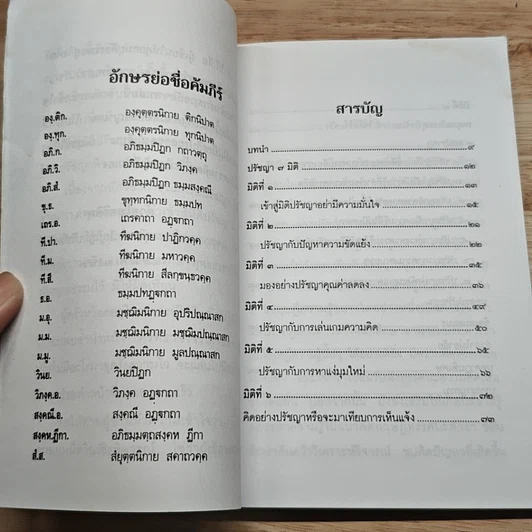 อักษรย่อชื่อคัมภีร์
องฺ.ติก. องฺคุตฺตรนิกาย ติกนิปาต
องฺ.ทุก. องฺคุตฺตรนิกาย ทุกนิปาต
อภิ.ก. อภิธมฺมปิฏก กถาวตฺถุ
อภิ.วิ. อภิธมฺมปิฏก วิภงฺค
อภิ.สํ. อภิธมฺมปิฏก ธมฺมสงฺคณี
ขุ.ธ. ขุทฺทกนิกาย ธมฺมปท
เถร.อ. เถรคาถา อฏฺฐกถา
ที.ปา. ทีฆนิกาย ปาฏิกวคฺค
ที.ม. ทีฆนิกาย มหาวคฺค
ที.สี. ทีฆนิกาย สีลกฺขนฺธวคฺค
ธ.อ. ธมฺมปทฏฺฐกถา
ม.อุ. มชฺฌิมนิกาย อุปริปณฺณาสก
ม.ม. มชฺฌิมนิกาย มชฺฌิมปณฺณาสก
ม.มู. มชฺฌิมนิกาย มูลปณฺณาสก
วินย. วินยปิฏก
วิภงฺค.อ. วิภงฺค อฏฺฐกถา
สงฺคณี.อ. สงฺคณี อฏฺฐกถา
สงฺคห.ฏีกา. อภิธมฺมตฺถสงฺคห ฏีกา
สํ.ส. สํยุตฺตนิกาย สคาถวคฺค
สารบัญ
บทนำ ๙
ปรัชญา ๗ มิติ ๑๒
มิติที่ ๑ ๑๓
เข้าสู่มิติปรัชญาอย่ามีความมั่นใจ ๑๕
มิติที่ ๒ ๒๑
ปรัชญากับปัญหาความขัดแย้ง ๒๒
มิติที่ ๓ ๓๕
มองอย่างปรัชญาคุณค่าลดลง ๓๖
มิติที่ ๔ ๔๙
ปรัชญากับการเล่นเกมความคิด ๕๐
มิติที่ ๕ ๖๕
ปรัชญากับการหาแง่มุมใหม่ ๖๖
มิติที่ ๖ ๗๒
คิดอย่างปรัชญาหรือจะมาเทียบการเห็นแจ้ง ๗๓